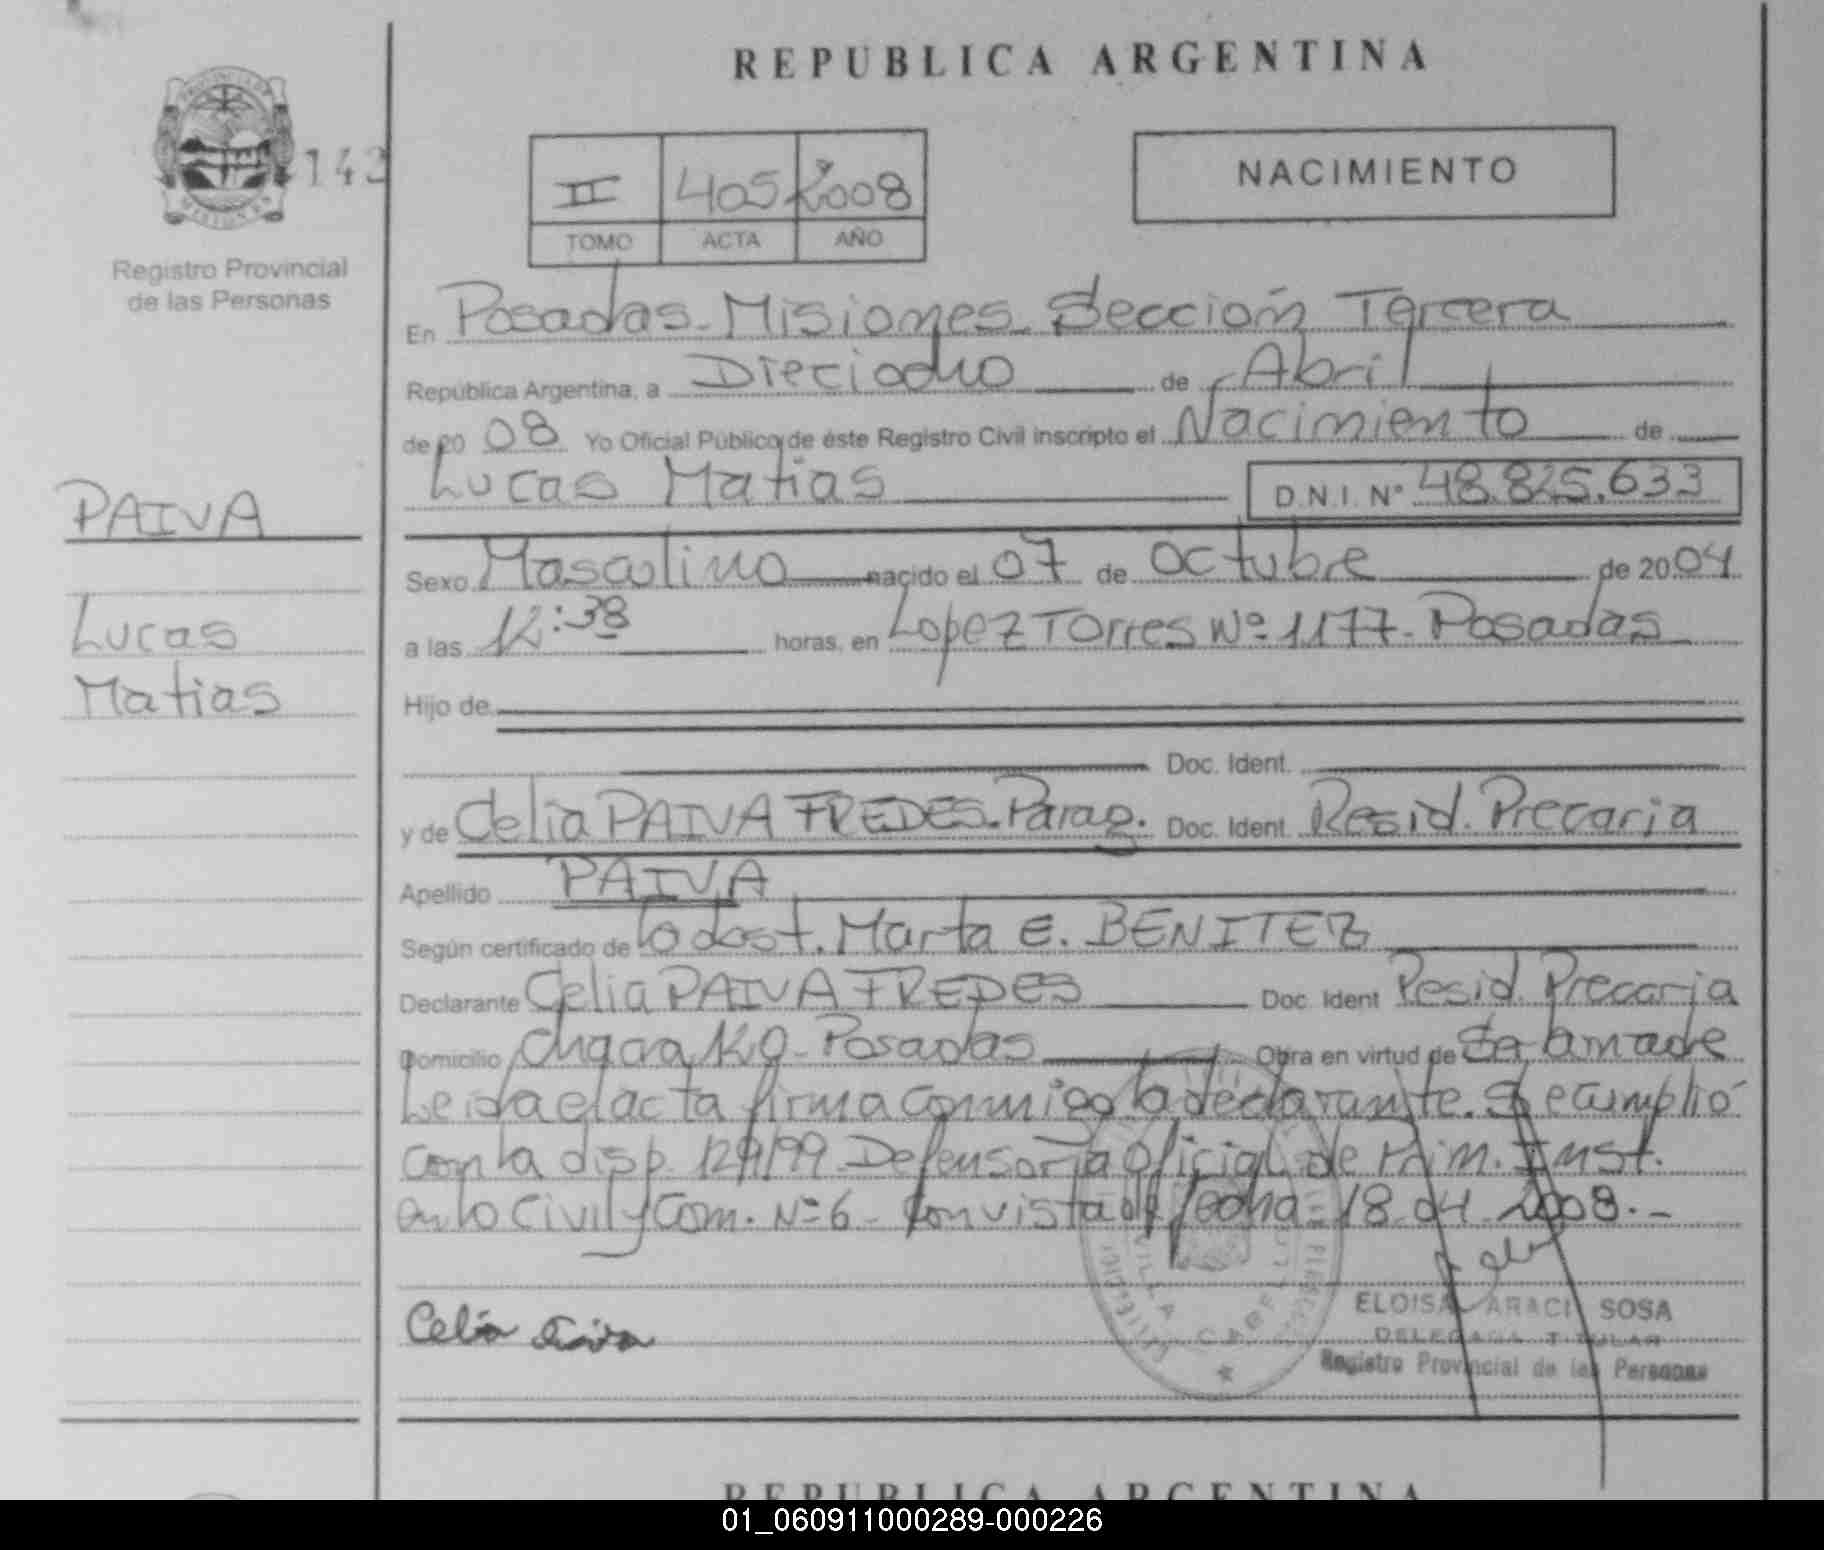 REPUBLICA ARGENTINA
143
II 405 2008
TOMO ACTA AÑO
NACIMIENTO
Registro Provincial
de las Personas
En Posadas - Misiones Sección Tercera
República Argentina, a Dieciocho de Abril
de 20 08 Yo Oficial Público de éste Registro Civil inscripto el Nacimiento de
Lucas Matias D.N.I. Nº 48.825.633
PAIVA
Lucas
Matias
Sexo Masculino nacido el 07 de Octubre de 20 04
a las 12:38 horas, en Lopez Torres Nº 1177 - Posadas
Hijo de
Doc. Ident.
y de Celia PAIVA FREDES - Parag. Doc. Ident. Resid. Precaria
Apellido PAIVA
Según certificado de la obst. Marta E. BENITEZ
Declarante Celia PAIVA FREDES Doc. Ident Resid. Precaria
Domicilio Chacra 129 - Posadas Obra en virtud de Ser la madre
Leida el acta firma conmigo la declarante. Se cumplió
con la disp. 129/99 Defensoria Oficial de Prim. Inst.
en lo Civil y Com. Nº 6 - Con vista de fecha = 18-04-2008.-
Celia Paiva
ELOISA ARACI SOSA
DELEGADA TITULAR
Registro Provincial de las Personas
REPUBLICA ARGENTINA
01_060911000289-000226